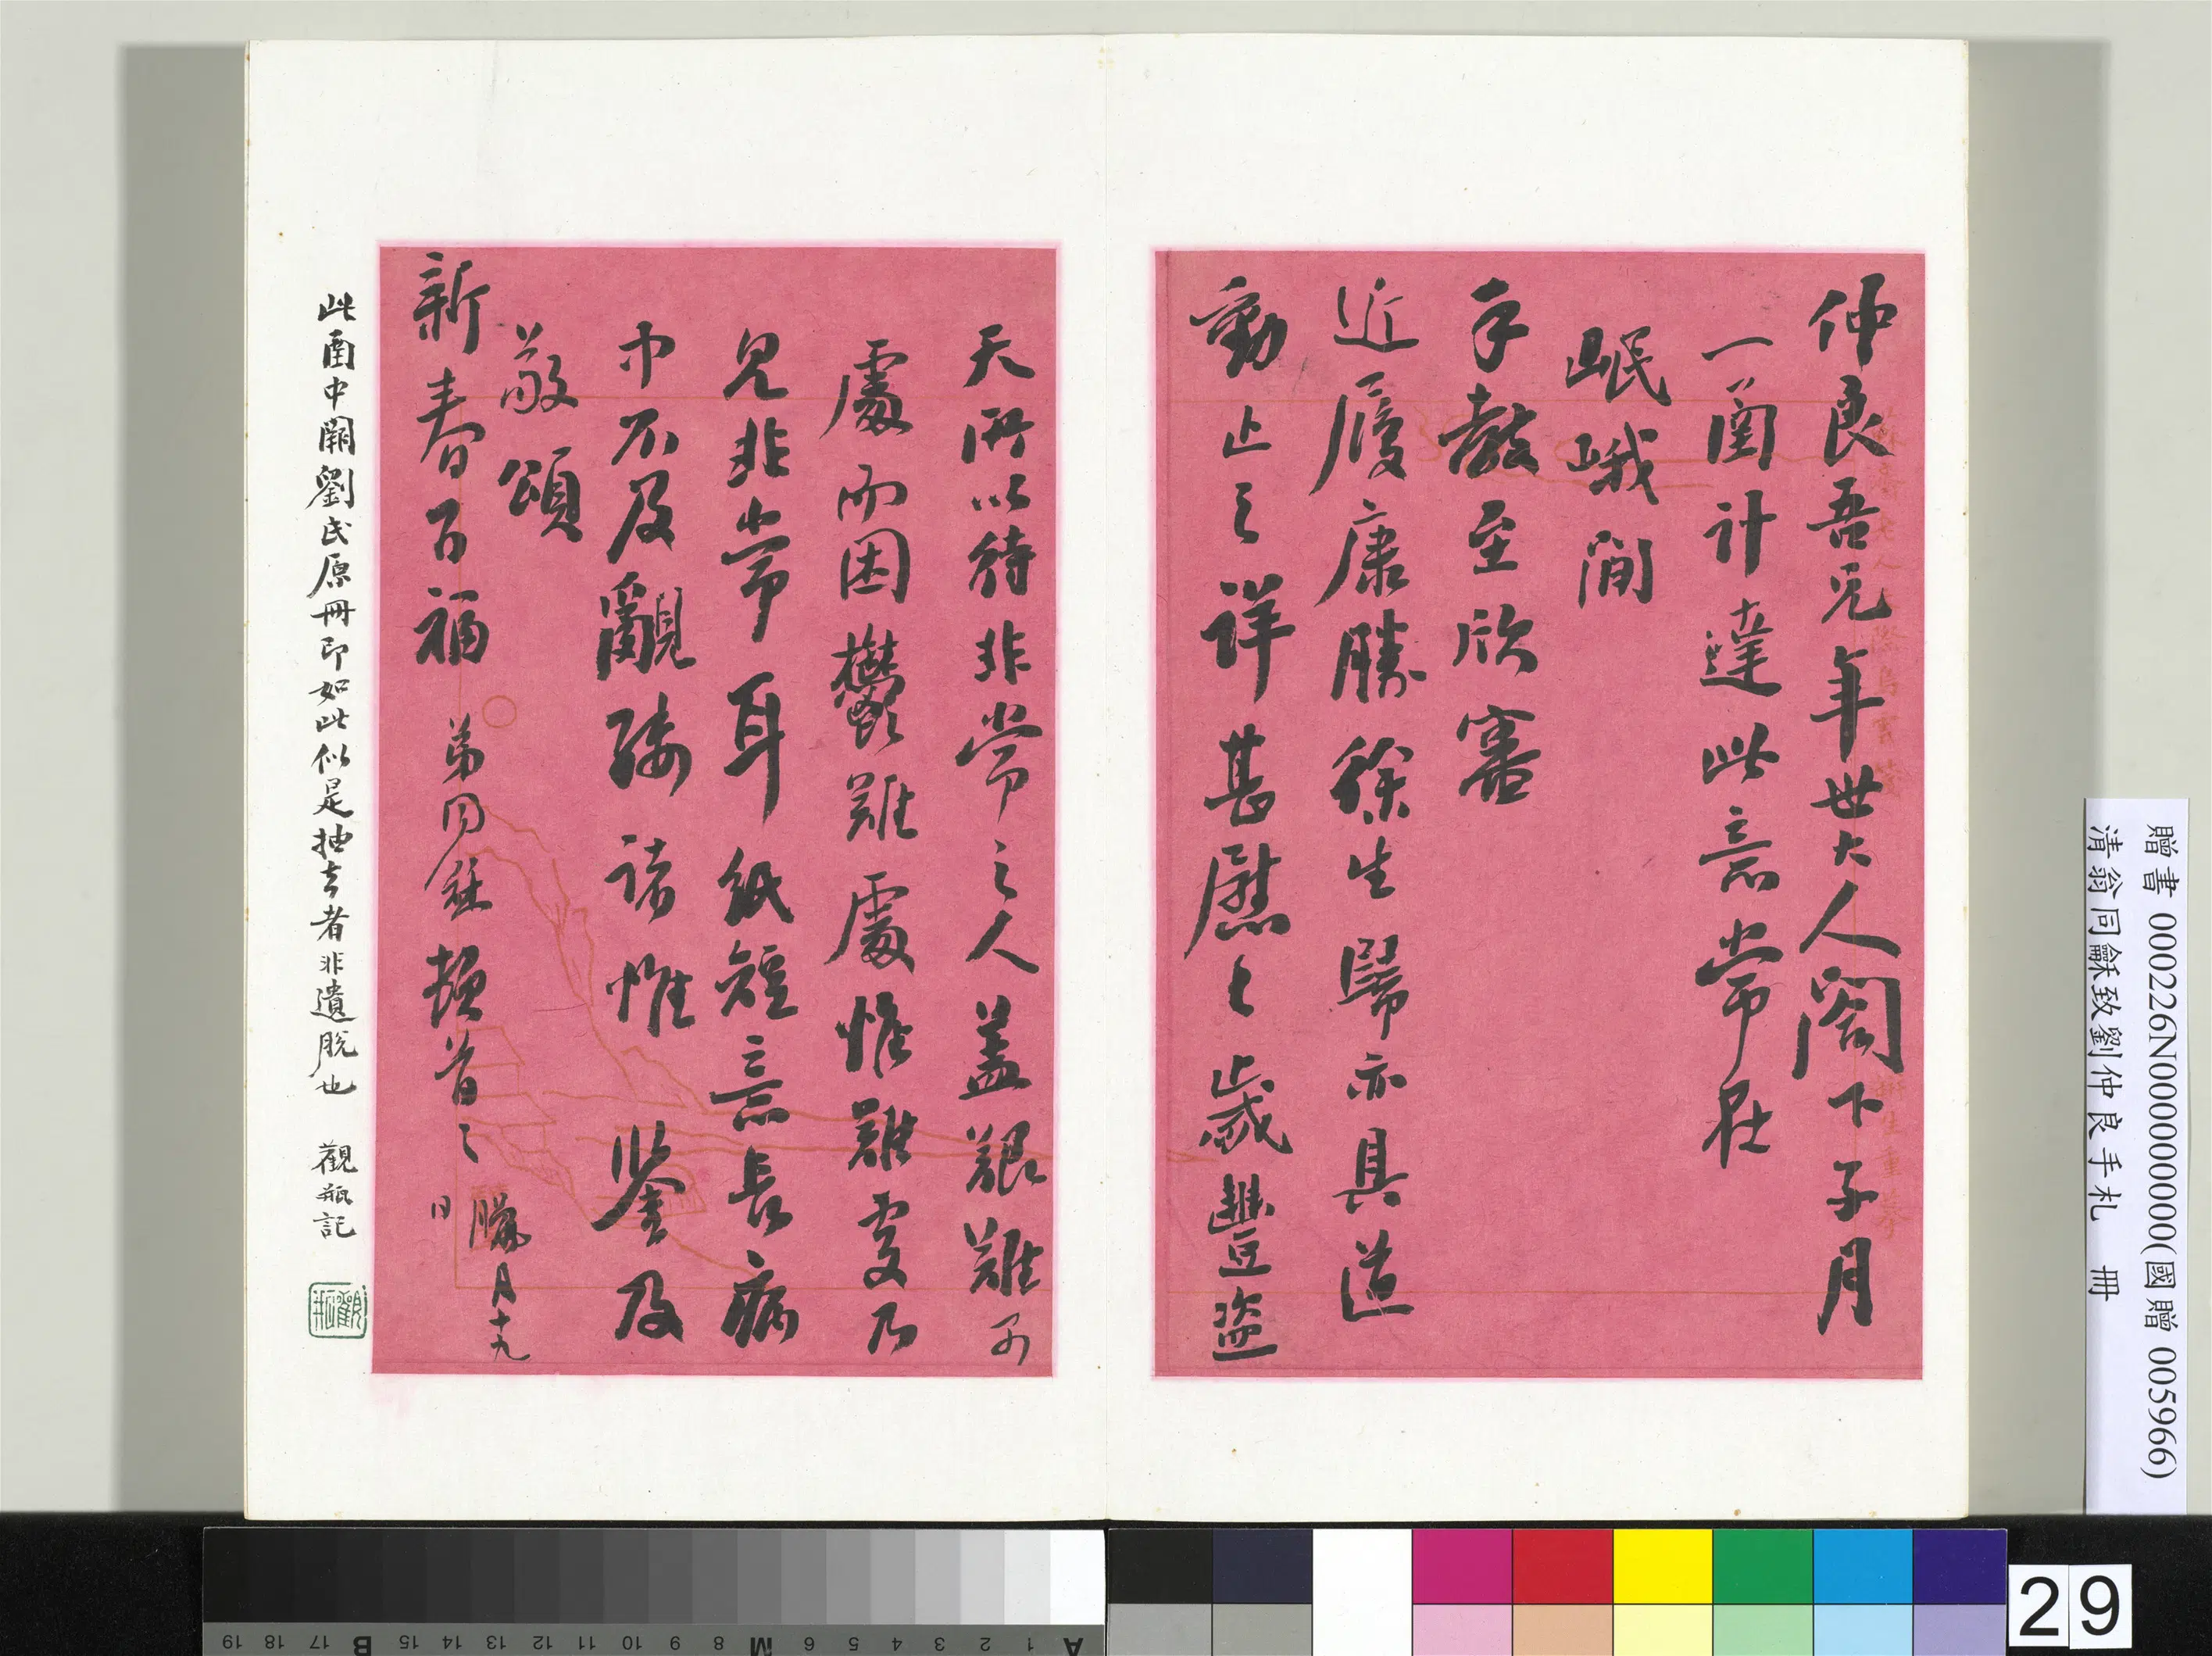 仲良吾兄年世大人閣下子月
一圅計達此意常在
岷峨間
手教至欣審
近履康勝徐生歸亦具道
動止之詳甚慰々歲豐盜
天所以待非常之人蓋艱難不
處而困鬱難處惟難處乃
見非常耳紙短意長病
中不及覼縷諸惟鑒及
敬頌
新春百福
弟同龢頓首々
臘月十九
日
此圅中闕劉氏原冊即如此似是抽去者非遺脫也 觀瓶記
贈書 000226N000000000(國贈 005966)
清翁同龢致劉仲良手札 冊
29
A 1 2 3 4 5 6 M 8 9 10 11 12 13 14 15 B 17 18 19